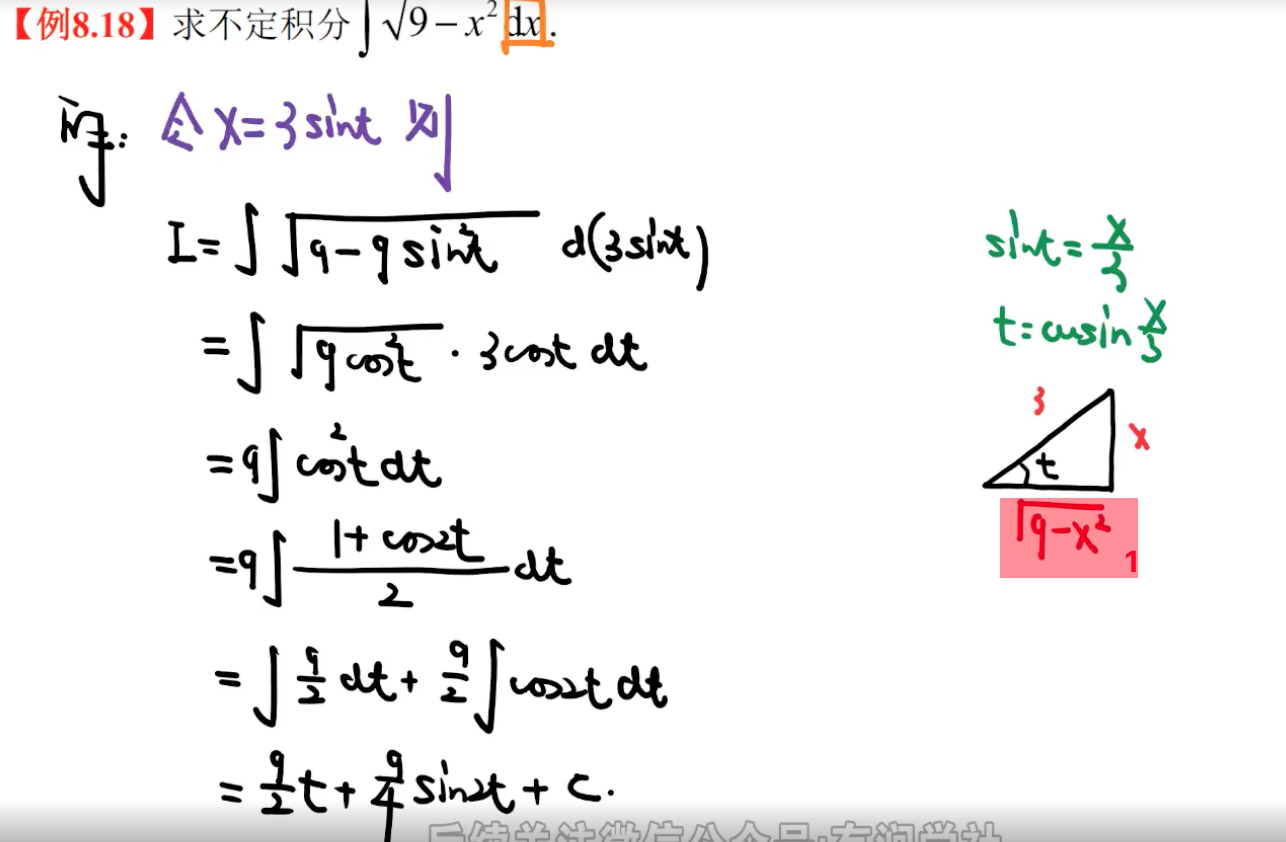 【例8.18】求不定积分∫√9−x² dx.
解: 令 x=3sint 则
I=∫√(9−9sin²t) d(3sint)
=∫√(9cos²t) · 3cost dt
=9∫cos²t dt
=9∫(1+cos2t)/2 dt
=∫9/2 dt + 9/2∫cos2t dt
=9/2 t + 9/4 sin2t + C.
sint = x/3
t = arcsin x/3
3
x
t
√(9−x²)
1
后续关注微信公众号:有润学社